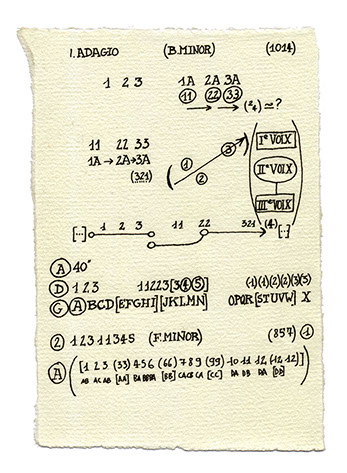 1. ADAGIO (B.MINOR) (1014)
1 2 3 1A 2A 3A
11 22 33
(2/4) ≃ ?
11 22 33
1A → 2A → 3A
(321)
1
2
3
Iᵉ VOIX
IIᵉ VOIX
IIIᵉ VOIX
[...] 1 2 3 11 22 321 (4) [..]
A 40"
D 1 2 3 11223[345] (1)(1)(2)(2)(3)(5)
G A BCD[EFGHI][JKLMN] OPQR[STUVW] X
2 12311345 (F.MINOR) (857) 1
A ([1 2 3 (33) 4 5 6 (66) 7 8 9 (99) 10 11 12 (12 12)])
AB AC AB [AA] BA BBBA [BB] CA CB CA [CC] DA DB DA [DD]